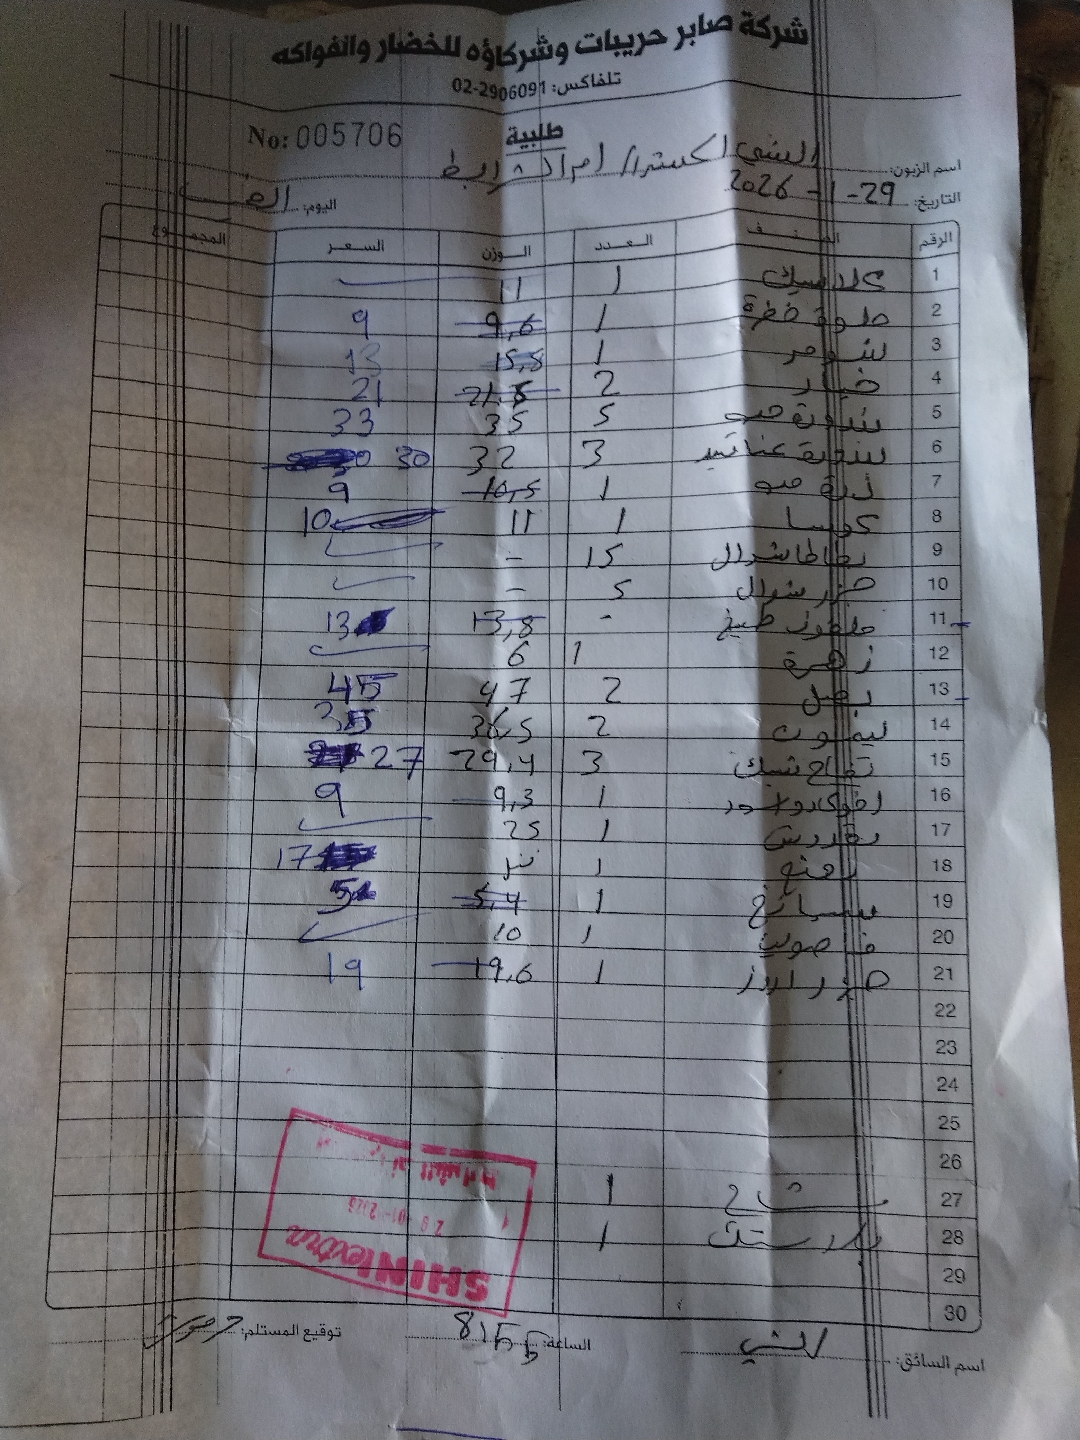 شركة صابر حريبات وشركاؤه للخضار والفواكه
تلفاكس: 02-2906091
طلبية
No: 005706
اسم الزبون: الشني اكسترا / ام الشرايط
التاريخ: 29-1-2026 اليوم:
الرقم الصنف العدد الوزن السعر المجموع
1 كلاسيك 1 11
2 حلوة خضرة 1 9,6 9
3 1 15,8 13
4 خيار 2 21,5 21
5 بندورة 5 35 33
6 بندورة عناقيد 3 32 30
7 1 10,5 9
8 كوسا 1 11 10
9 بطاطا شوال 15 -
10 جزر شوال 5 -
11 ملفوف طبيخ - 13,8 13
12 زهرة 1 6
13 بصل 2 47 45
14 ليمون 2 36,5 35
15 تفاح 3 29,4 27
16 1 9,3 9
17 بقدونس 1 25
18 نعنع 1 17
19 سبانخ 1 5,4 5
20 فاصوليا 1 10
21 1 19,6 19
22
23
24
25
26
27 مشاح 1
28 بلاستيك 1
29
30
SHINIextra
29-01-2026
ام الشرايط
اسم السائق: الشني الساعة: 8:55 توقيع المستلم: